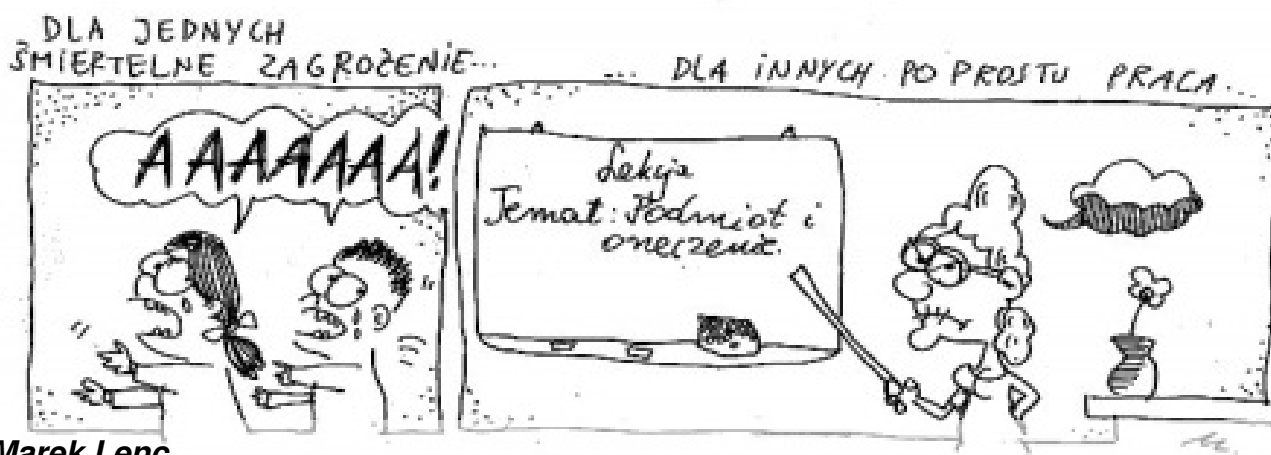 DLA JEDNYCH
ŚMIERTELNE ZAGROŻENIE...
... DLA INNYCH PO PROSTU PRACA...
AAAAAAA!
Lekcja
Temat: Podmiot i
orzeczenie.
Marek Lenc